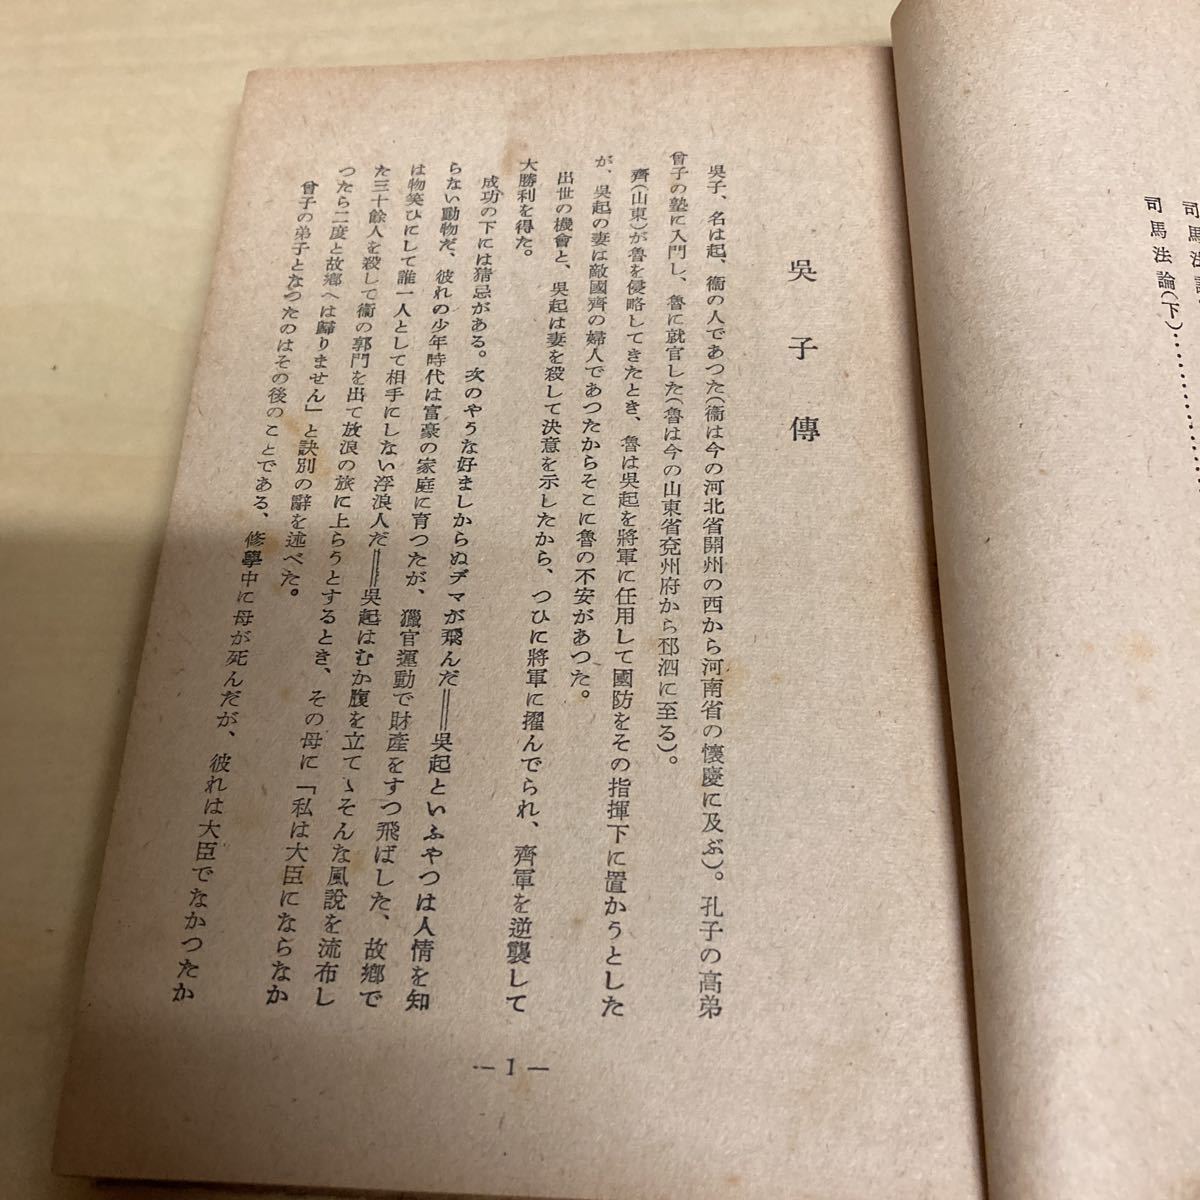 司馬法論(下)……………
吳子傳
吳子、名は起、衞の人であつた(衞は今の河北省開州の西から河南省の懷慶に及ぶ)。孔子の高弟
曾子の塾に入門し、魯に就官した(魯は今の山東省兗州府から邳泗に至る)。
齊(山東)が魯を侵略してきたとき、魯は吳起を將軍に任用して國防をその指揮下に置かうとした
が、吳起の妻は敵國齊の婦人であつたからそこに魯の不安があつた。
出世の機會と、吳起は妻を殺して決意を示したから、つひに將軍に擢んでられ、齊軍を逆襲して
大勝利を得た。
成功の下には猜忌がある。次のやうな好ましからぬデマが飛んだ＝＝吳起といふやつは人情を知
らない動物だ、彼れの少年時代は富豪の家庭に育つたが、獵官運動で財產をすつ飛ばした、故鄕で
は物笑ひにして誰一人として相手にしない浮浪人だ＝＝吳起はむか腹を立てゝそんな風說を流布し
た三十餘人を殺して衞の郭門を出て放浪の旅に上らうとするとき、その母に「私は大臣にならなか
つたら二度と故鄕へは歸りません」と訣別の辭を述べた。
曾子の弟子となつたのはその後のことである、修學中に母が死んだが、彼れは大臣でなかつたか
— 1 —